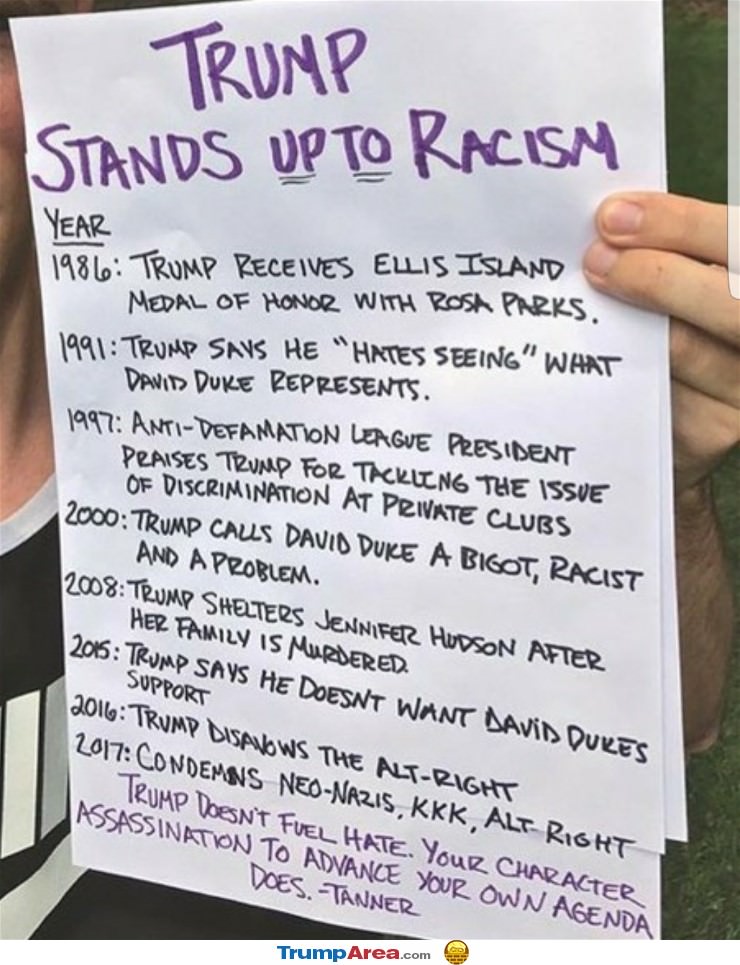 TRUMP
STANDS UP TO RACISM
YEAR
1986: TRUMP RECEIVES ELLIS ISLAND
MEDAL OF HONOR WITH ROSA PARKS.
1991: TRUMP SAYS HE "HATES SEEING" WHAT
DAVID DUKE REPRESENTS.
1997: ANTI-DEFAMATION LEAGUE PRESIDENT
PRAISES TRUMP FOR TACKLING THE ISSUE
OF DISCRIMINATION AT PRIVATE CLUBS
2000: TRUMP CALLS DAVID DUKE A BIGOT, RACIST
AND A PROBLEM.
2008: TRUMP SHELTERS JENNIFER HUDSON AFTER
HER FAMILY IS MURDERED
2015: TRUMP SAYS HE DOESNT WANT DAVID DUKES
SUPPORT
2016: TRUMP DISAVOWS THE ALT-RIGHT
2017: CONDEMNS NEO-NAZIS, KKK, ALT-RIGHT
TRUMP DOESN'T FUEL HATE. YOUR CHARACTER
ASSASSINATION TO ADVANCE YOUR OWN AGENDA
DOES. -TANNER
TrumpArea.com